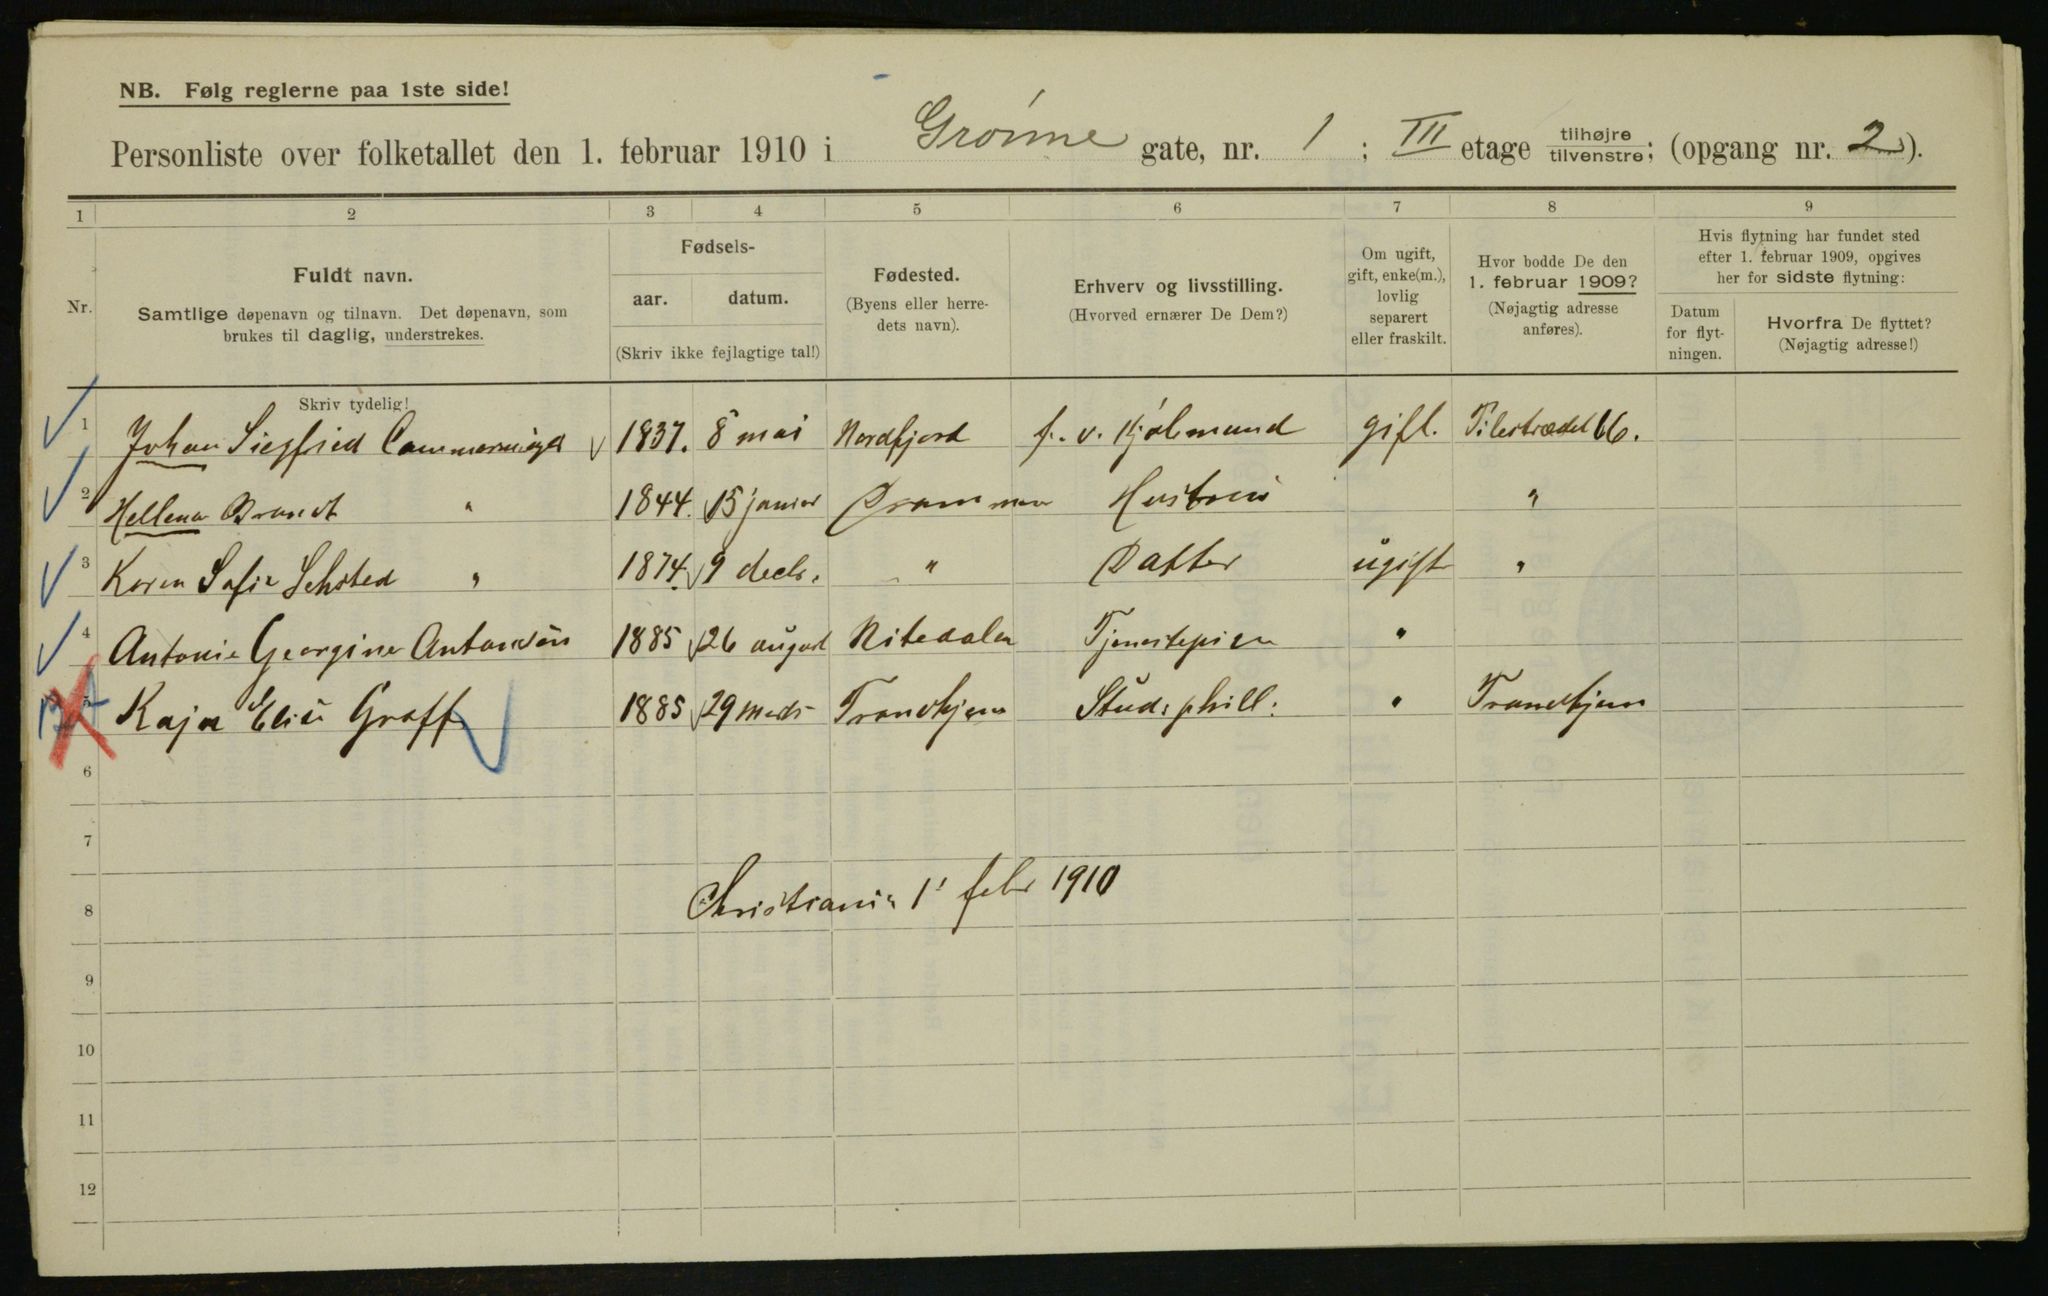 NB. Følg reglerne paa 1ste side!
Personliste over folketallet den 1. februar 1910 i Grønne gate, nr. 1 ; III etage tilhøjre tilvenstre; (opgang nr. 2).
1 2 3 4 5 6 7 8 9
Nr.
Fuldt navn.
Samtlige døpenavn og tilnavn. Det døpenavn, som
brukes til daglig, understrekes.
Fødsels-
aar. datum.
(Skriv ikke fejlagtige tal!)
Fødested.
(Byens eller herre-
dets navn).
Erhverv og livsstilling.
(Hvorved ernærer De Dem?)
Om ugift,
gift, enke(m.),
lovlig
separert
eller fraskilt.
Hvor bodde De den
1. februar 1909?
(Nøjagtig adresse
anføres).
Hvis flytning har fundet sted
efter 1. februar 1909, opgives
her for sidste flytning:
Datum
for flyt-
ningen.
Hvorfra De flyttet?
(Nøjagtig adresse!)
Skriv tydelig!
1 Johan Siegfried Cammermeyer 1837. 8 mai Nordfjord f. v. Kjøbmand gift. Pilestrædet 66.
2 Hellena Brandt " 1844. 15 januar Drammen Hustru "
3 Karen Sofie Sehsted " 1874. 9 decb. " Datter ugift "
4 Antonie Georgine Antonsen 1885 26 august Nitedalen Tjenestepige "
5 Kaja Elise Graff 1885 29 Trondhjem Stud: phill: " Trondhjem
6
7
8
Christiania 1' febr 1910
9
10
11
12